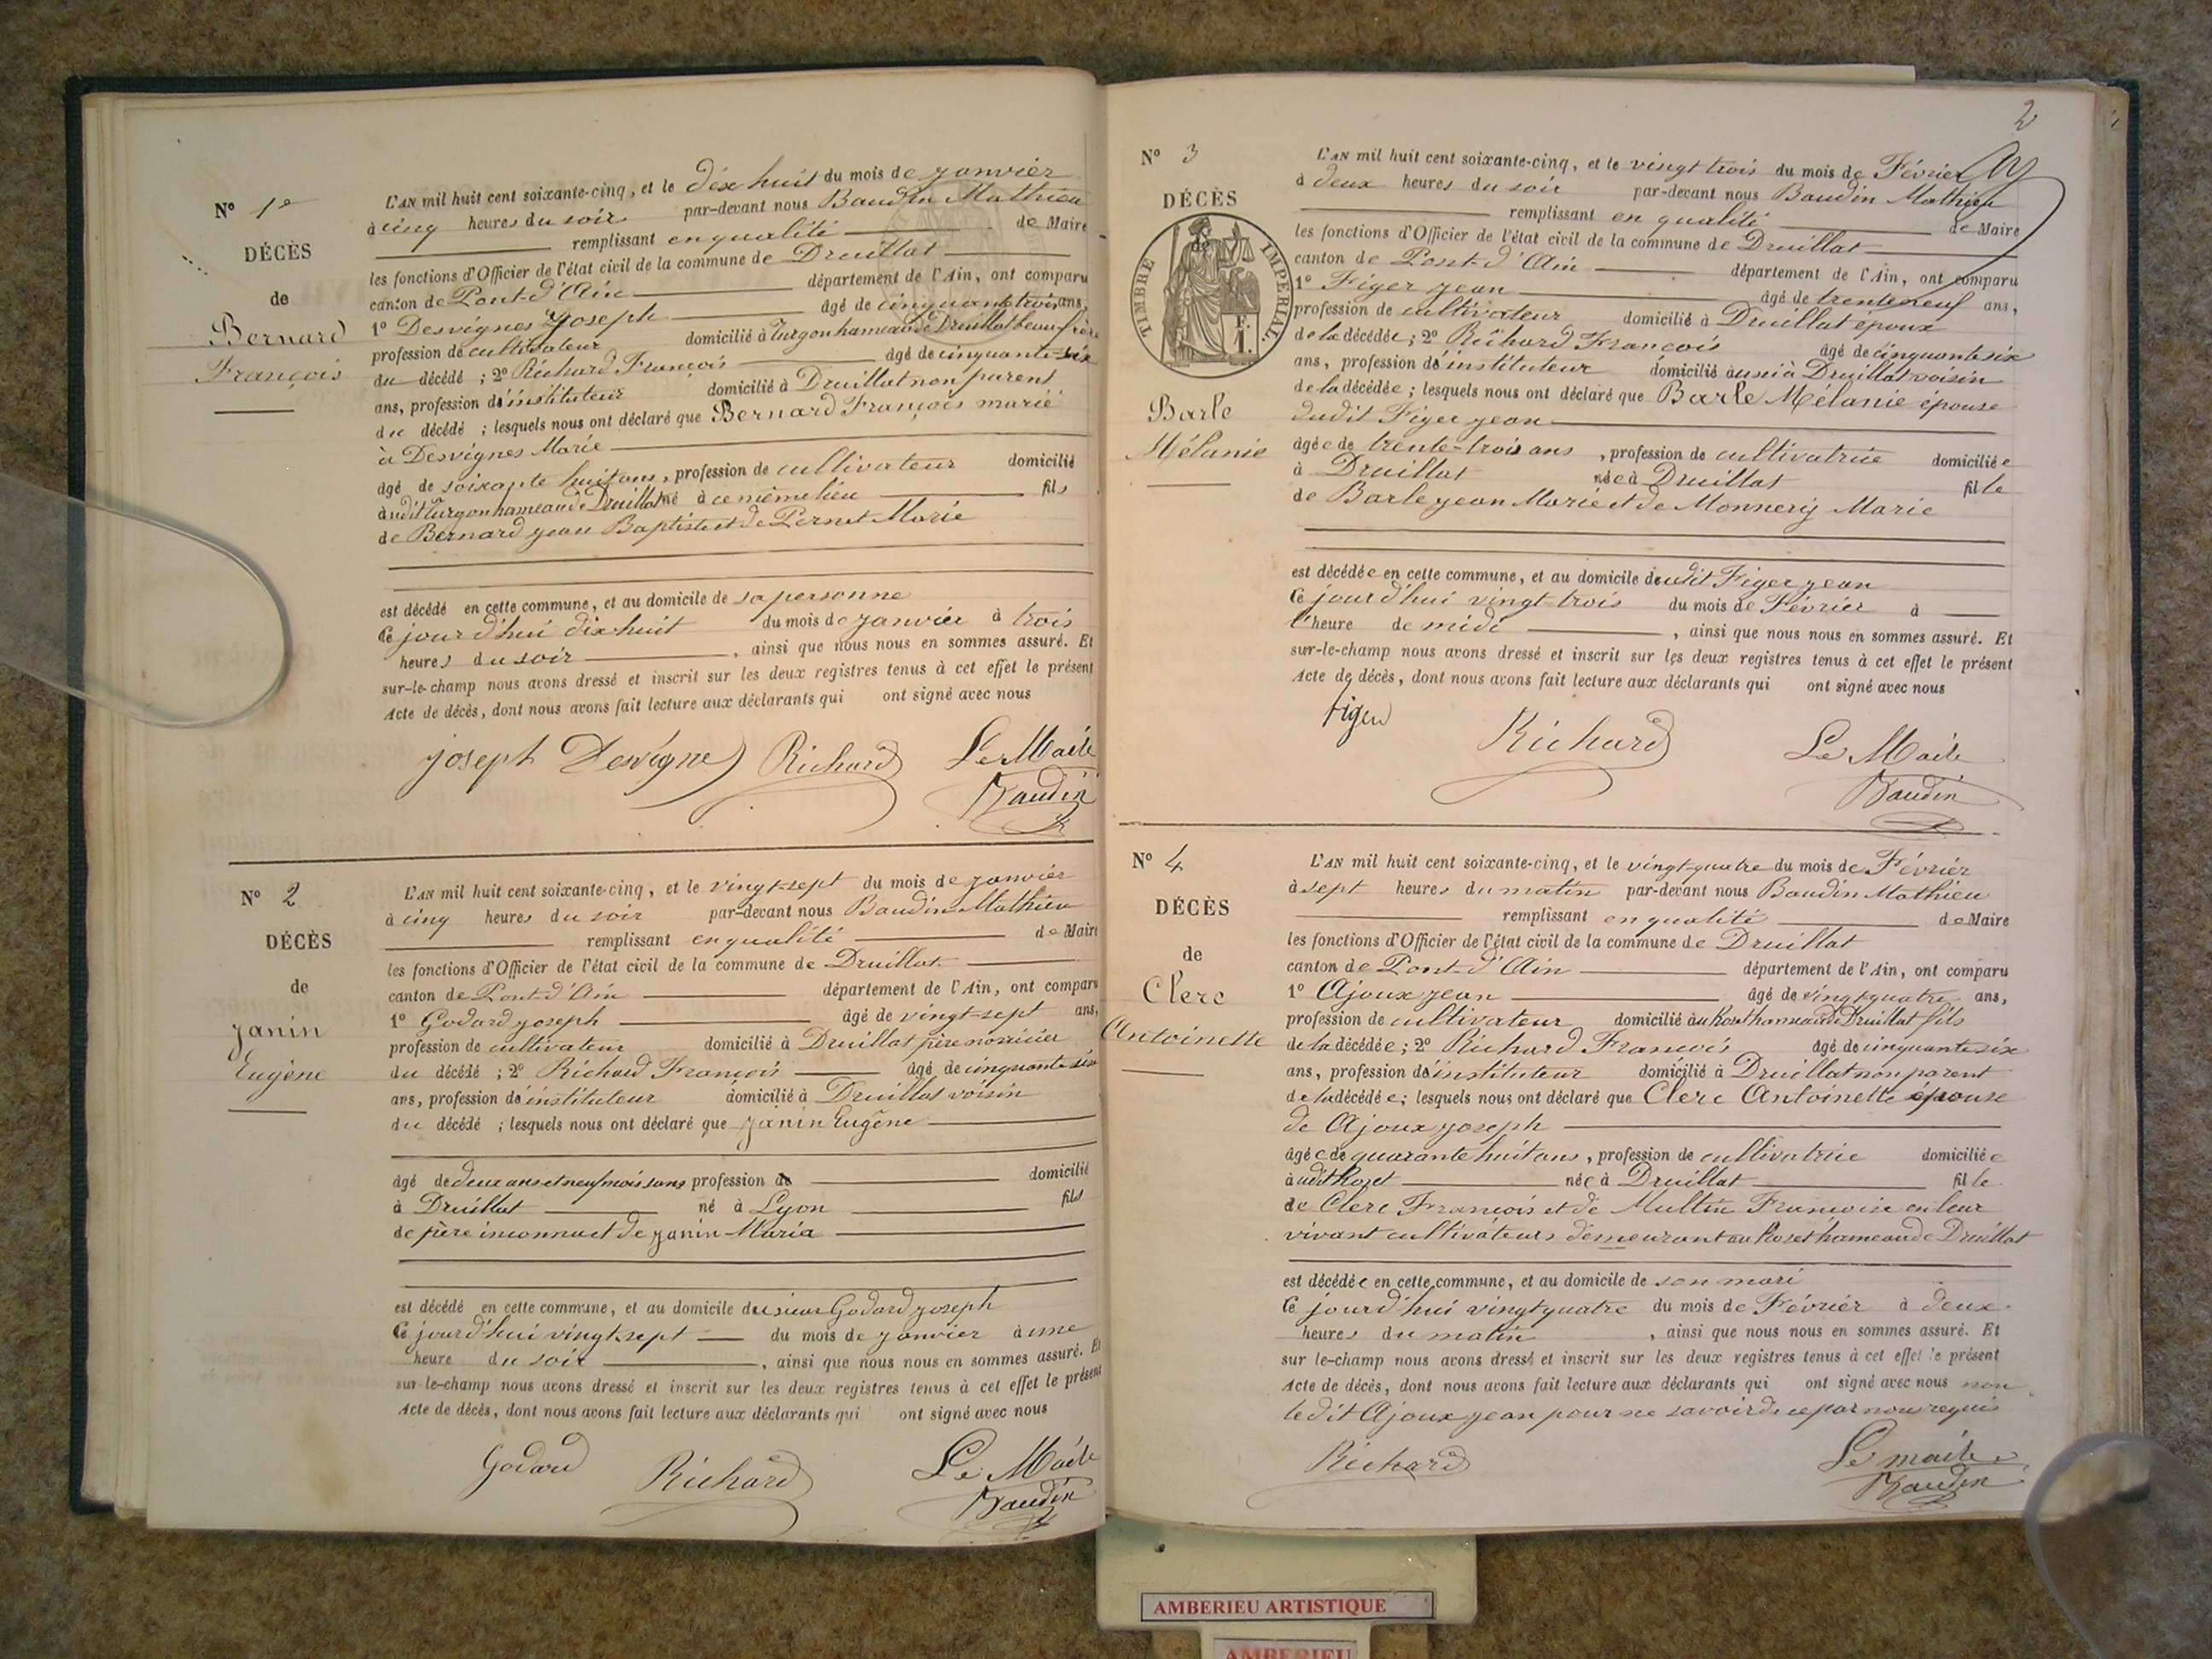 Nº 1er
DÉCÈS
de
Bernard
François
L'AN mil huit cent soixante-cinq, et le dix huit du mois de janvier
à cinq heures du soir par-devant nous Baudin Mathieu
remplissant en qualité de Maire
les fonctions d'Officier de l'état civil de la commune de Druillat
canton de Pont-d'Ain département de l'Ain, ont comparu
1º Desvignes Joseph âgé de cinquante trois ans,
profession de cultivateur domicilié à Turgon hameau de Druillat beau frère
du décédé ; 2º Richard François âgé de cinquante-six
ans, profession d'instituteur domicilié à Druillat non parent
du décédé ; lesquels nous ont déclaré que Bernard François marié
à Desvignes Marie
âgé de soixante huit ans, profession de cultivateur domicilié
audit Turgon hameau de Druillat né à ce même lieu fils
de Bernard jean Baptiste et de Pernet Marie
est décédé en cette commune, et au domicile de sa personne
Ce jour d'hui dix huit du mois de janvier à trois
heures du soir , ainsi que nous nous en sommes assuré. Et
sur-le-champ nous avons dressé et inscrit sur les deux registres tenus à cet effet le présent
Acte de décès, dont nous avons fait lecture aux déclarants qui ont signé avec nous
joseph Desvigne Richard Le Maire
Baudin
Nº 2
DÉCÈS
de
Janin
Eugène
L'AN mil huit cent soixante-cinq, et le vingt-sept du mois de janvier
à cinq heures du soir par-devant nous Baudin Mathieu
remplissant en qualité de Maire
les fonctions d'Officier de l'état civil de la commune de Druillat
canton de Pont-d'Ain département de l'Ain, ont comparu
1º Godard joseph âgé de vingt-sept ans,
profession de cultivateur domicilié à Druillat père nourricier
du décédé ; 2º Richard François âgé de cinquante six
ans, profession d'instituteur domicilié à Druillat voisin
du décédé ; lesquels nous ont déclaré que Janin Eugène
âgé de deux ans et neuf mois sans profession de domicilié
à Druillat né à Lyon fils
de père inconnu et de janin Maria
est décédé en cette commune, et au domicile du sieur Godard joseph
Ce jourd'hui vingt-sept du mois de janvier à une
heure du soir , ainsi que nous nous en sommes assuré. Et
sur-le-champ nous avons dressé et inscrit sur les deux registres tenus à cet effet le présent
Acte de décès, dont nous avons fait lecture aux déclarants qui ont signé avec nous
Godard Richard Le Maire
Baudin
2
Nº 3
DÉCÈS
TIMBRE IMPÉRIAL
Barle
Mélanie
L'AN mil huit cent soixante-cinq, et le vingt trois du mois de Février
à deux heures du soir par-devant nous Baudin Mathieu
remplissant en qualité de Maire
les fonctions d'Officier de l'état civil de la commune de Druillat
canton de Pont-d'Ain département de l'Ain, ont comparu
1º Figer jean âgé de trente neuf ans,
profession de cultivateur domicilié à Druillat époux
de la décédée ; 2º Richard François âgé de cinquante six
ans, profession d'instituteur domicilié aussi à Druillat voisin
de la décédée ; lesquels nous ont déclaré que Barle Mélanie épouse
dudit Figer jean
âgée de trente-trois ans , profession de cultivatrice domiciliée
à Druillat née à Druillat fille
de Barle jean Marie et de Monnery Marie
est décédée en cette commune, et au domicile dudit Figer jean
Ce jourd'hui vingt-trois du mois de Février à
l'heure de midi , ainsi que nous nous en sommes assuré. Et
sur-le-champ nous avons dressé et inscrit sur les deux registres tenus à cet effet le présent
Acte de décès, dont nous avons fait lecture aux déclarants qui ont signé avec nous
figer Richard Le Maire
Baudin
Nº 4
DÉCÈS
de
Clerc
Antoinette
L'AN mil huit cent soixante-cinq, et le vingt-quatre du mois de Février
à sept heures du matin par-devant nous Baudin Mathieu
remplissant en qualité de Maire
les fonctions d'Officier de l'état civil de la commune de Druillat
canton de Pont-d'Ain département de l'Ain, ont comparu
1º Ajoux jean âgé de vingt-quatre ans,
profession de cultivateur domicilié au Roset hameau de Druillat fils
de la décédée ; 2º Richard François âgé de cinquante six
ans, profession d'instituteur domicilié à Druillat non parent
de la décédée ; lesquels nous ont déclaré que Clerc Antoinette épouse
de Ajoux joseph
âgée de quarante huit ans , profession de cultivatrice domiciliée
audit Roset née à Druillat fille
de Clerc François et de Multin Françoise en leur
vivant cultivateurs demeurant au Roset hameau de Druillat
est décédée en cette commune, et au domicile de son mari
Ce jourd'hui vingt quatre du mois de Février à deux
heures du matin , ainsi que nous nous en sommes assuré. Et
sur le-champ nous avons dressé et inscrit sur les deux registres tenus à cet effet le présent
Acte de décès, dont nous avons fait lecture aux déclarants qui ont signé avec nous non
le dit Ajoux jean pour ne savoir de ce par nous requis
Richard Le maire
Baudin
AMBERIEU ARTISTIQUE
AMBERIEU